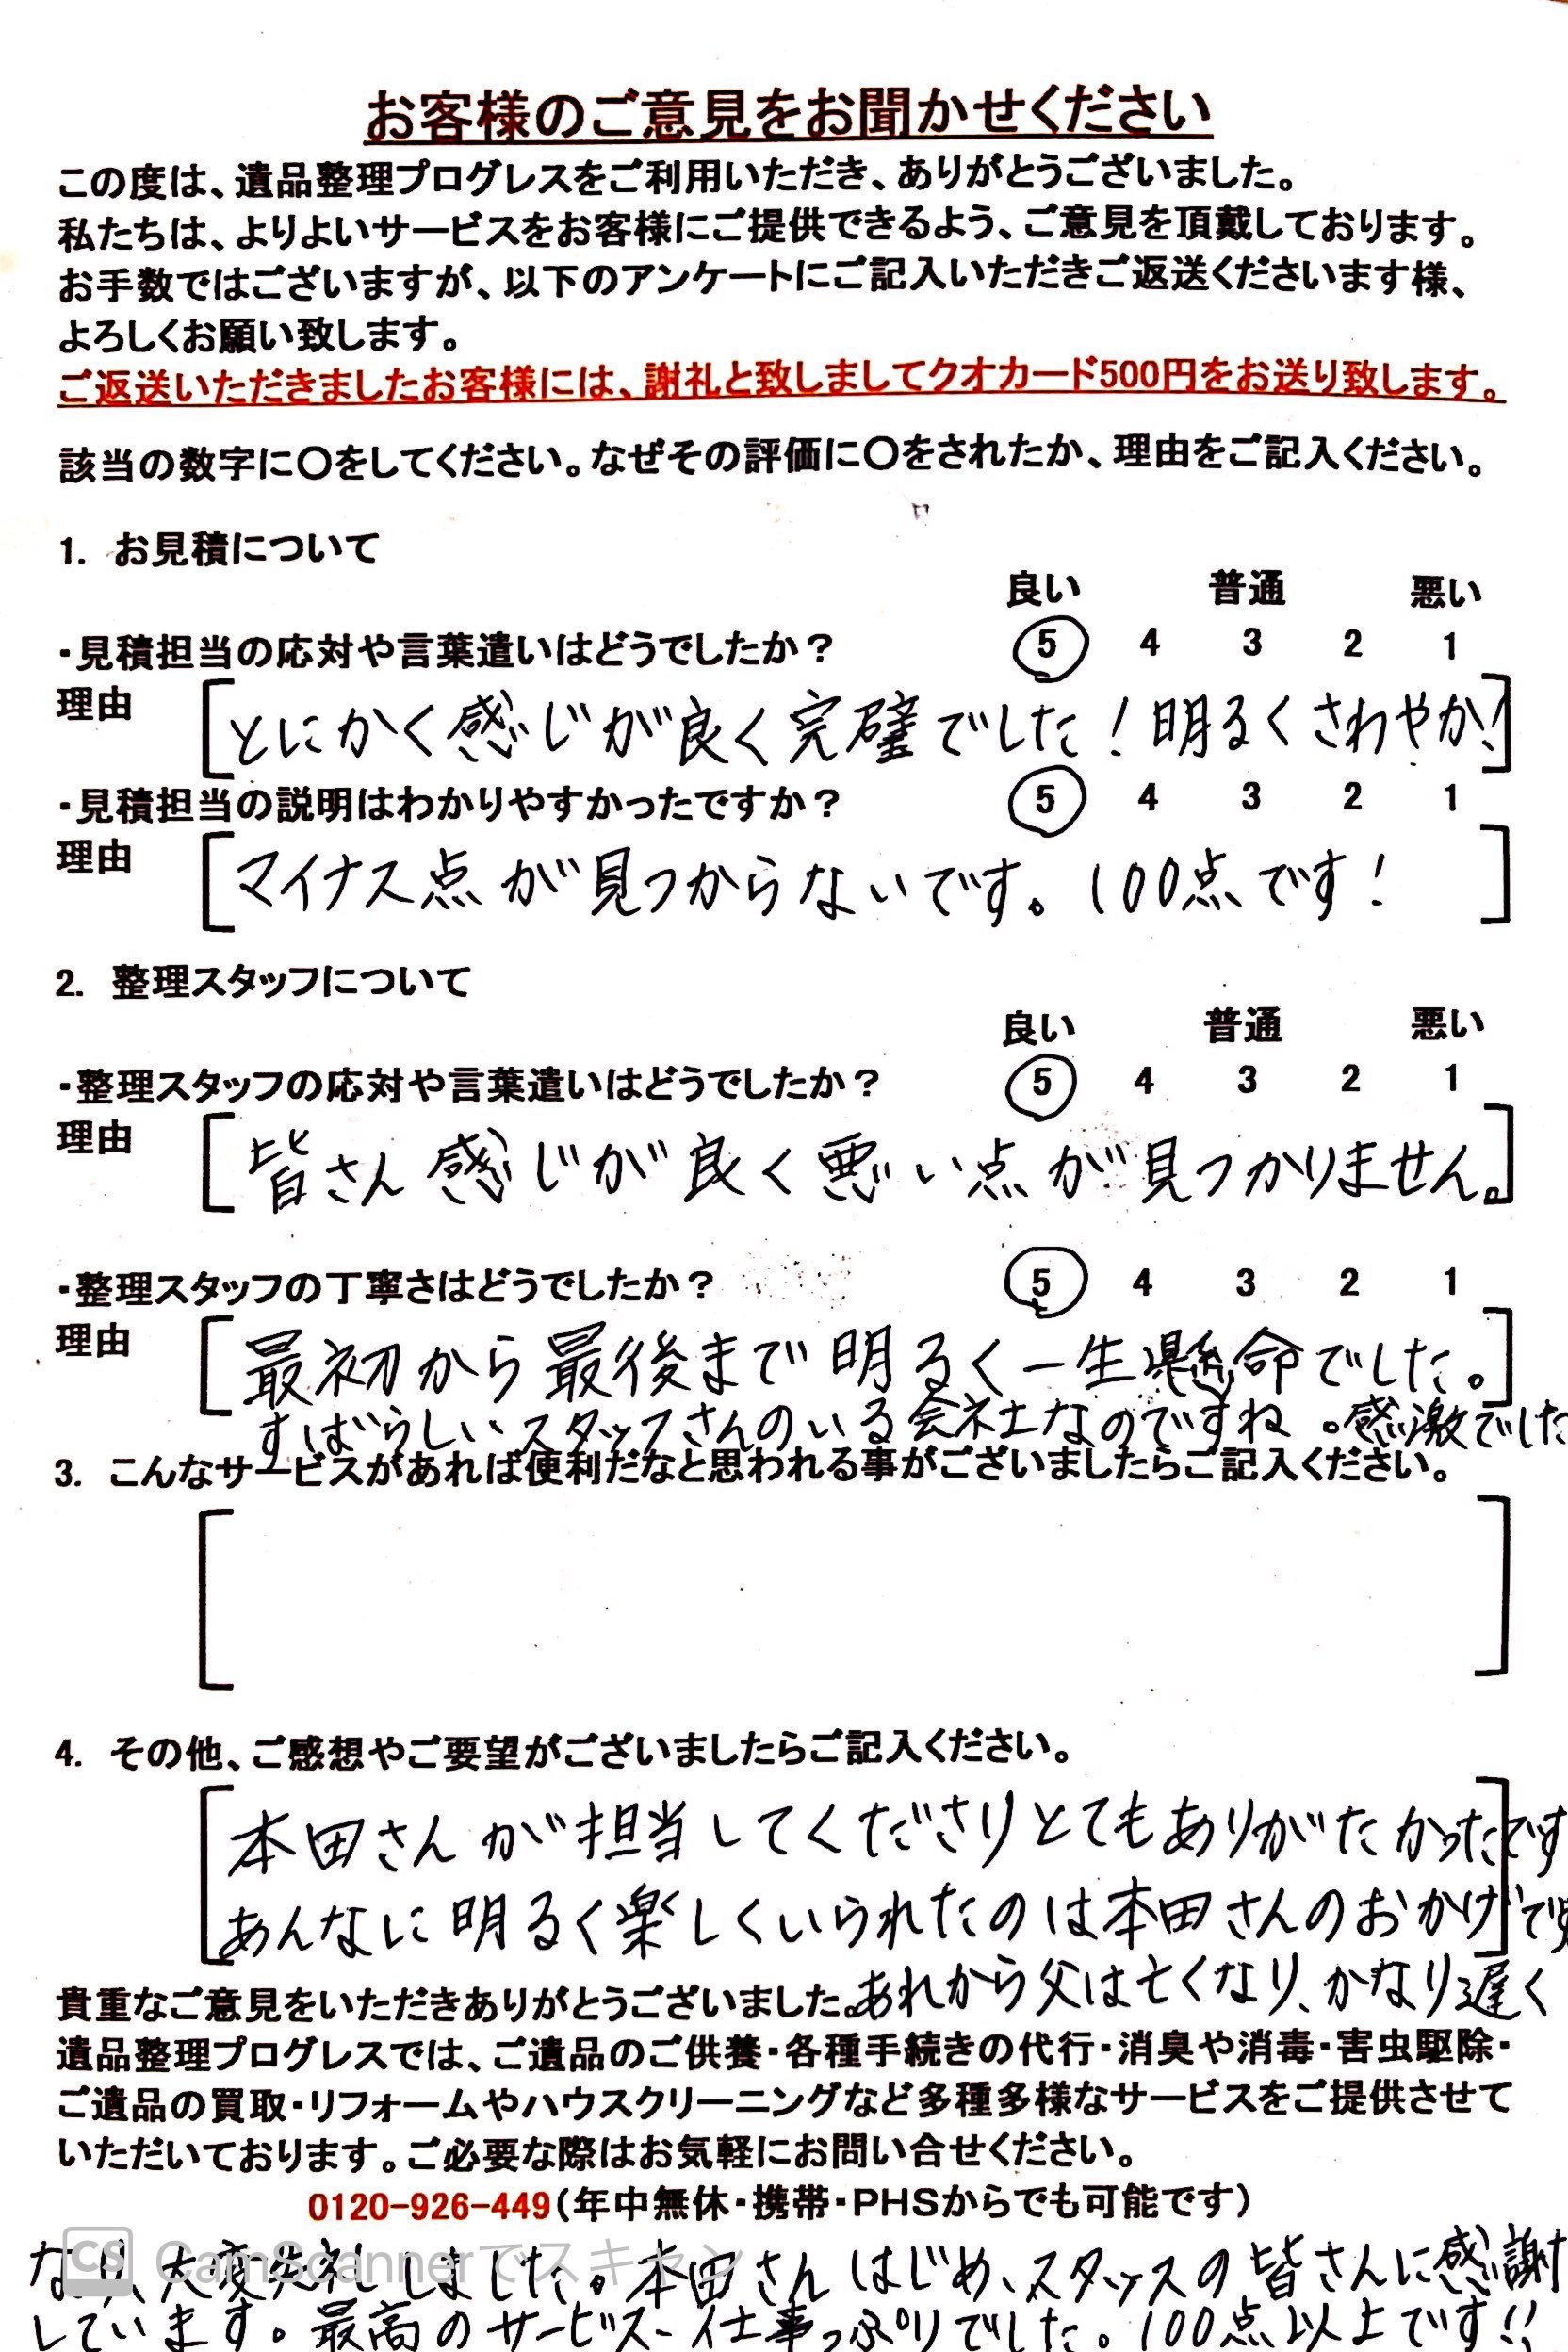 お客様のご意見をお聞かせください
この度は、遺品整理プログレスをご利用いただき、ありがとうございました。
私たちは、よりよいサービスをお客様にご提供できるよう、ご意見を頂戴しております。
お手数ではございますが、以下のアンケートにご記入いただきご返送くださいます様、
よろしくお願い致します。
ご返送いただきましたお客様には、謝礼と致しましてクオカード500円をお送り致します。
該当の数字に〇をしてください。なぜその評価に〇をされたか、理由をご記入ください。
1. お見積について
良い 普通 悪い
・見積担当の応対や言葉遣いはどうでしたか？ 5 4 3 2 1
理由 [とにかく感じが良く完璧でした！明るくさわやか！]
・見積担当の説明はわかりやすかったですか？ 5 4 3 2 1
理由 [マイナス点が見つからないです。100点です！]
2. 整理スタッフについて
良い 普通 悪い
・整理スタッフの応対や言葉遣いはどうでしたか？ 5 4 3 2 1
理由 [皆さん感じが良く悪い点が見つかりません。]
・整理スタッフの丁寧さはどうでしたか？ 5 4 3 2 1
理由 [最初から最後まで明るく一生懸命でした。]
すばらしいスタッフさんのいる会社なのですね。感激でした
3. こんなサービスがあれば便利だなと思われる事がございましたらご記入ください。
4. その他、ご感想やご要望がございましたらご記入ください。
本田さんが担当してくださりとてもありがたかったです
あんなに明るく楽しくいられたのは本田さんのおかげです
貴重なご意見をいただきありがとうございました。あれから父は亡くなり、かなり遅く
遺品整理プログレスでは、ご遺品のご供養・各種手続きの代行・消臭や消毒・害虫駆除・
ご遺品の買取・リフォームやハウスクリーニングなど多種多様なサービスをご提供させて
いただいております。ご必要な際はお気軽にお問い合せください。
0120-926-449（年中無休・携帯・PHSからでも可能です）
CS CamScannerでスキャン
なり、大変失礼しました。本田さんはじめ、スタッフの皆さんに感謝
しています。最高のサービス、仕事っぷりでした。100点以上です!!